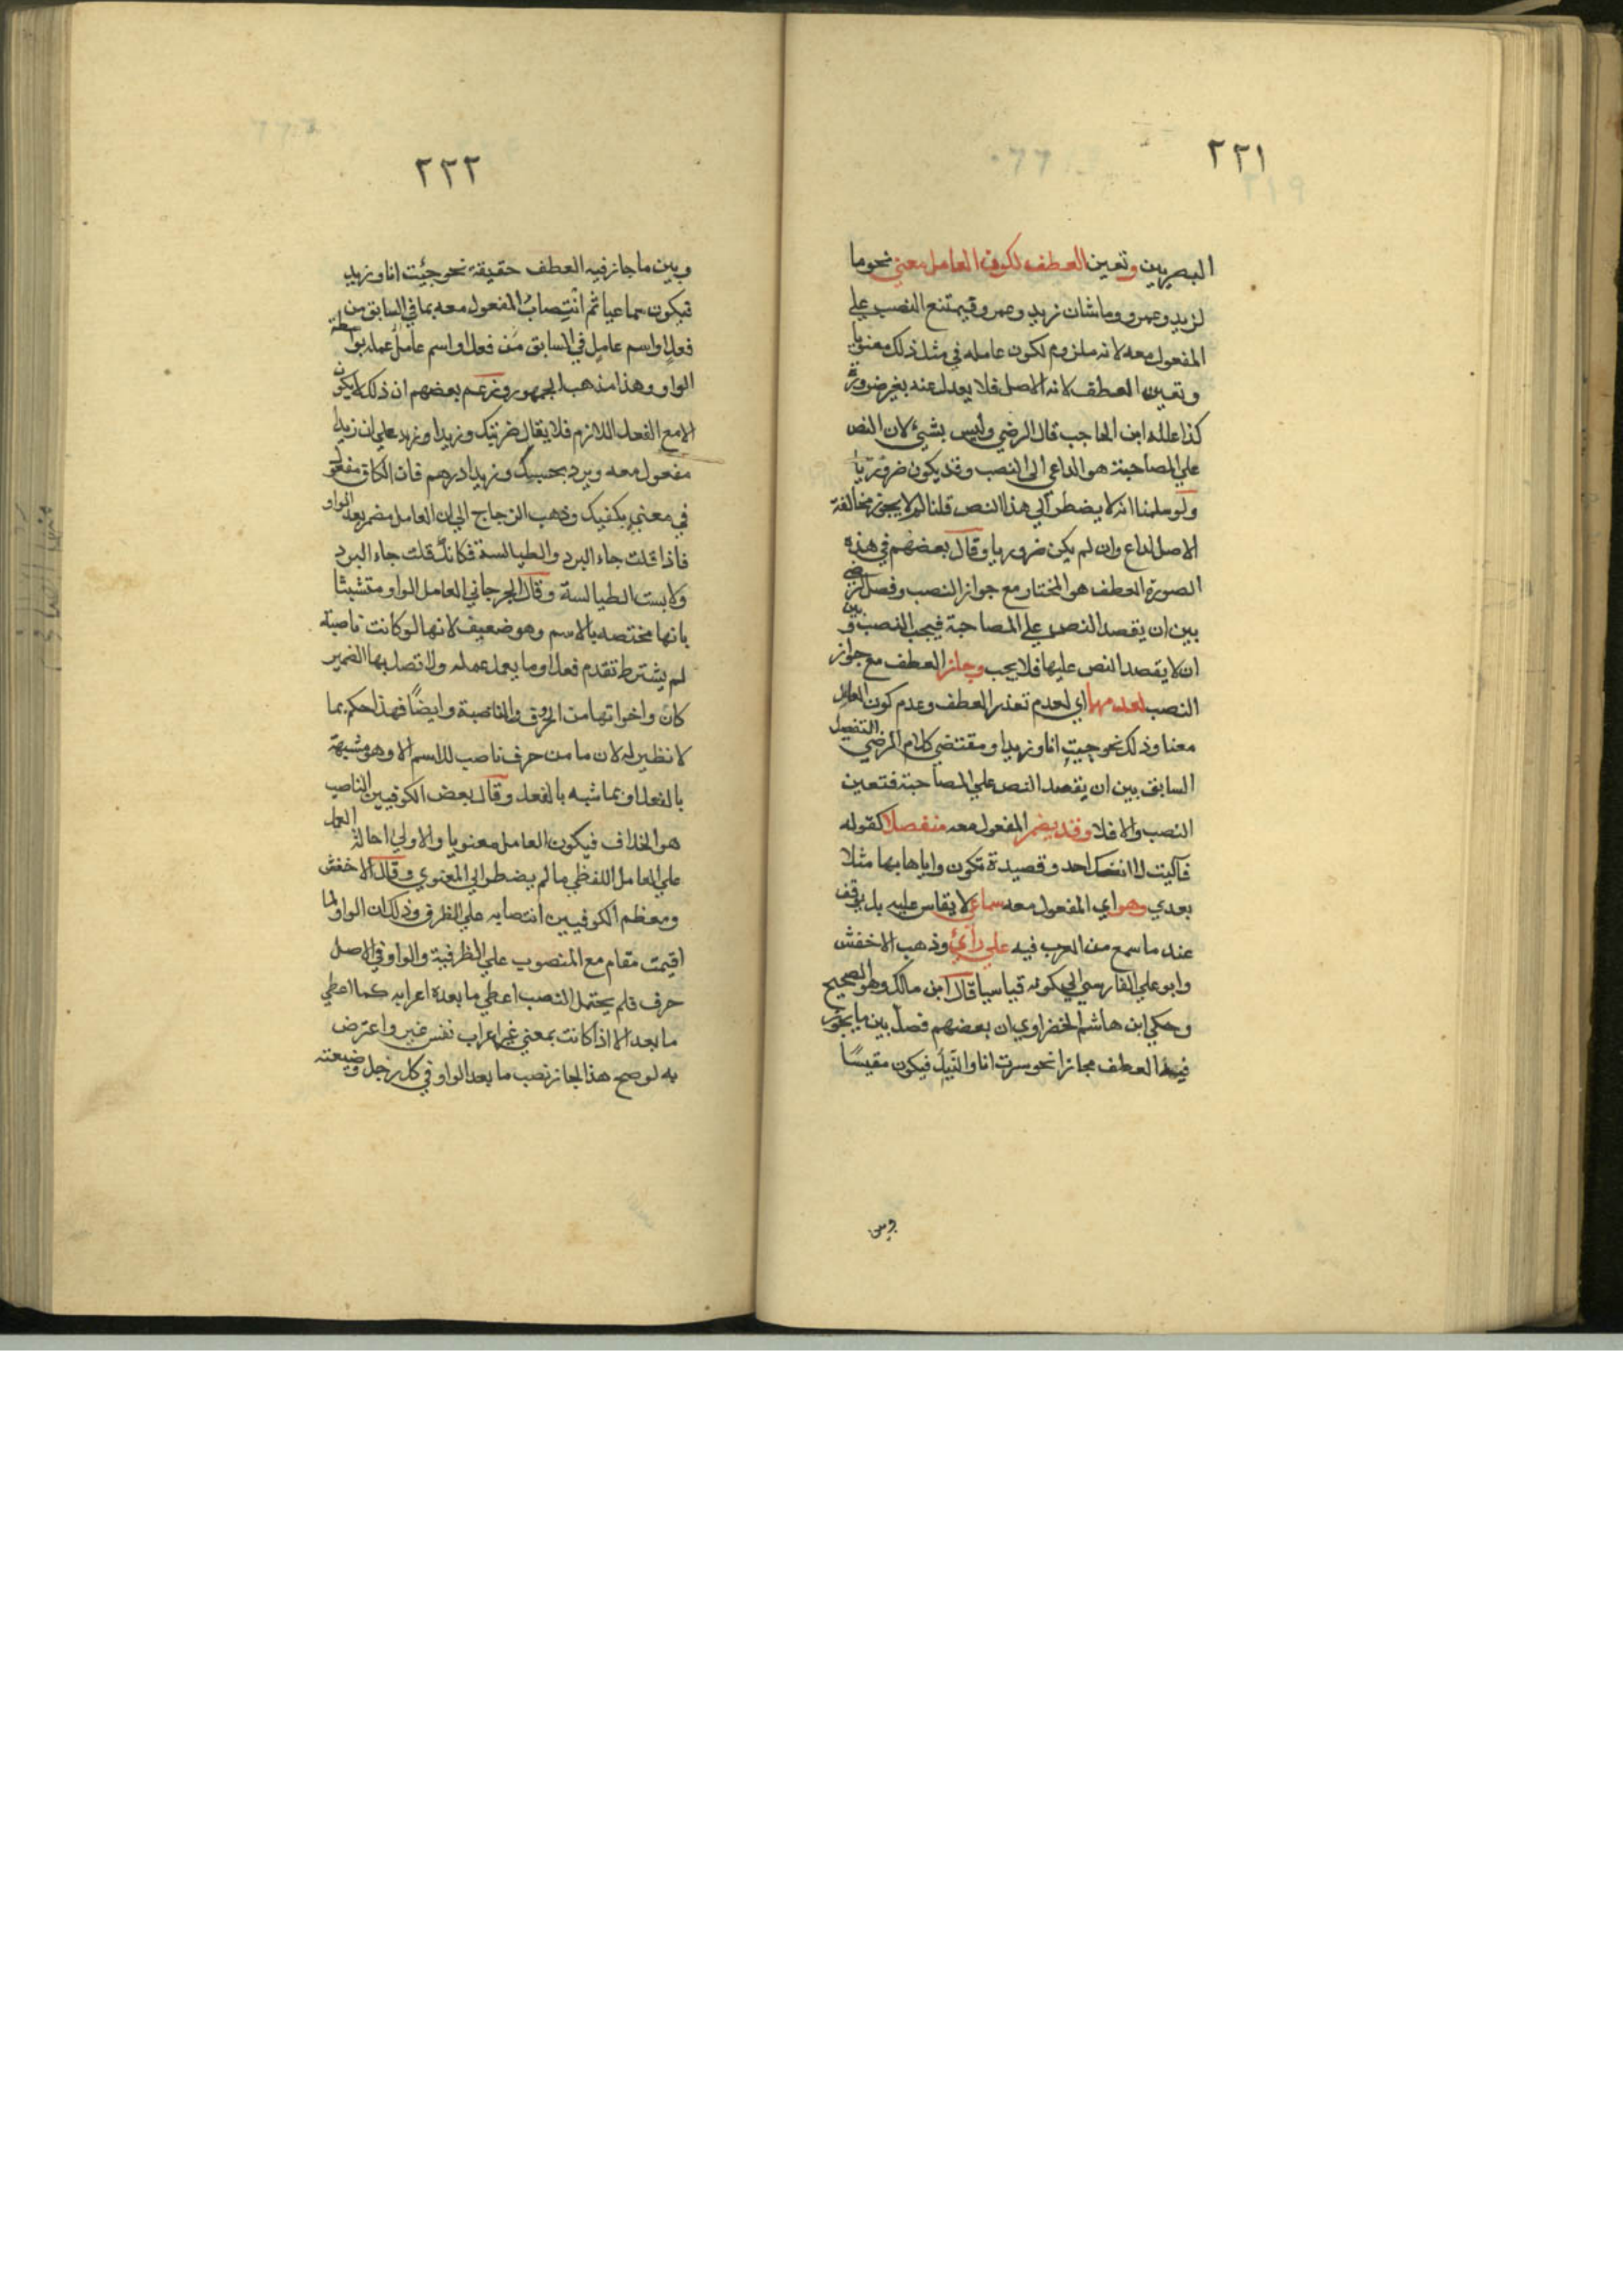 ٢٢١
البصريين وتعين العطف لكون العامل معني نحو ما
لزيد وعمرو وما شان زيد وعمرو فيمتنع النصب علي
المفعول معه لانه ملزوم لكون عامله في مثل ذلك معنويا
وتعين العطف لانه الاصل فلا يعدل عنه بغير ضرورة
كذا علله ابن الحاجب قال الرضي وليس بشيء لان النص
علي المصاحبة هو الداعي الي النصب وقد يكون ضروريا
ولو سلمنا انه لا يضطر الي هذا النص قلنا لم لا يجوز مخالفة
الاصل لداع وان لم يكن ضروريا وقال بعضهم في هذه
الصورة العطف هو المختار مع جواز النصب وفصل الرضي
بين ان يقصد النص علي المصاحبة فيجب النصب وبين
ان لا يقصد النص عليها فلا يجب وجاز العطف مع جواز
النصب لعدمهما اي لعدم تعذر العطف وعدم كون العامل
معنا وذلك نحو جيت انا وزيدا ومقتضي كلام الرضي التفصيل
السابق بين ان يقصد النص علي المصاحبة فتعين
النصب والا فلا وقد يضمر المفعول معه منفصلا كقوله
فآليت لا انفك احد وقصيدة تكون واياها بها مثلا
بعدي وهو اي المفعول معه سماعي لا يقاس عليه بل يوقف
عند ما سمع من العرب فيه علي رأي وذهب الاخفش
وابو علي الفارسي الي كونه قياسيا قال ابن مالك وهو الصحيح
وحكي ابن هاشم الخضراوي ان بعضهم فصل بين ما يجوز
فيه العطف مجازا نحو سرت انا والنيل فيكون مقيسا
وبين
٢٢٢
وبين ما جاز فيه العطف حقيقة نحو جئت انا وزيد
فيكون سماعيا ثم انتصاب المفعول معه بما في السابق من
فعل او اسم عامل في السابق من فعل او اسم عامل عمله بواسطة
الواو وهذا مذهب الجمهور وزعم بعضهم ان ذلك لا يكون
الا مع الفعل اللازم فلا يقال ضربتك وزيدا وزيد علي ان زيدا
مفعول معه ويرد بحسبك وزيدا درهم فان الكاف مفعول
في معني يكفيك وذهب الزجاج الي ان العامل مضمر بعد الواو
فاذا قلت جاء البرد والطيالسة فكانك قلت جاء البرد
ولابست الطيالسة وقال الجرجاني العامل الواو متشبثا
بانها مختصه بالاسم وهو ضعيف لانها لو كانت ناصبة
لم يشترط تقدم فعل او ما يعمل عمله ولا تصل بها الضمير
كان واخواتها من الحروف والناصبة وايضا فهذا حكم بما
لا نظير له لان ما من حرف ناصب للاسم الا وهو مشبهة
بالفعل او بما شبه بالفعل وقال بعض الكوفيين الناصب
هو الخلاف فيكون العامل معنويا والاولي احالة العمل
علي العامل اللفظي ما لم يضطر الي المعنوي وقال الاخفش
ومعظم الكوفيين انتصابه علي الظرف وذلك ان الواو لما
اقيمت مقام مع المنصوب علي الظرفية والواو في الاصل
حرف فلم يحتمل النصب اعطي ما بعده اعرابه كما اعطي
ما بعد الا اذا كانت بمعني غير اعراب نفس غير واعترض
به لو صح هذا لجاز نصب ما بعد الواو في كل رجل وضيعته